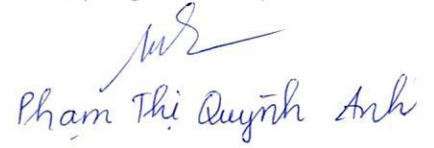 Phạm Thị Quỳnh Anh